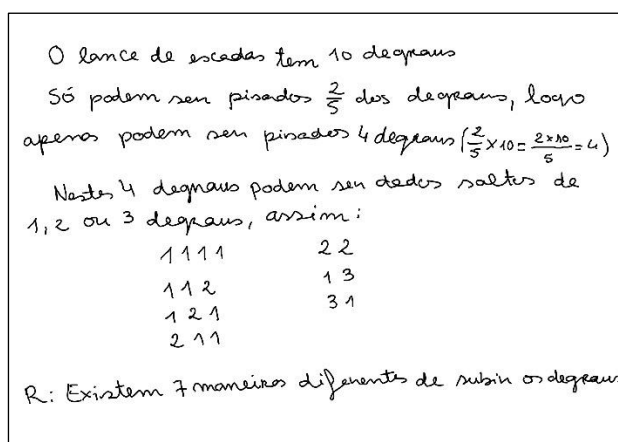 O lance de escadas tem 10 degraus
Só podem ser pisados 2/5 dos degraus, logo
apenas podem ser pisados 4 degraus (2/5 × 10 = 2×10/5 = 4)
Nestes 4 degraus podem ser dados saltos de
1, 2 ou 3 degraus, assim:
1 1 1 1 2 2
1 1 2 1 3
1 2 1 3 1
2 1 1
R: Existem 7 maneiras diferentes de subir os degraus